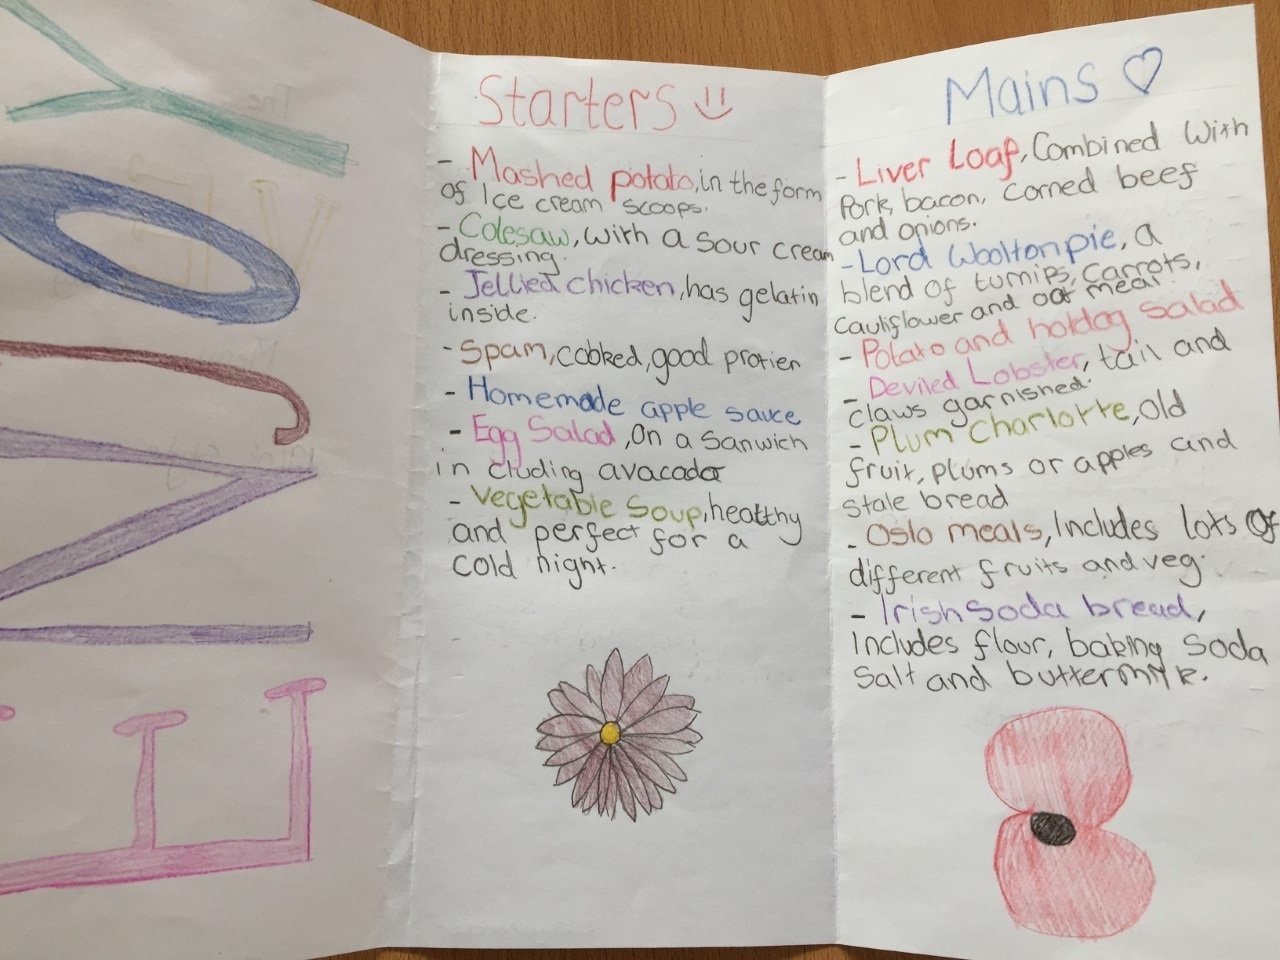 ENJOY
Starters
- Mashed potato, in the form
of Ice cream scoops.
- Colesaw, with a sour cream
dressing.
- Jellied chicken, has gelatin
inside.
- Spam, cooked, good protien
- Homemade apple sauce
- Egg Salad, On a Sanwich
in cluding avacado
- Vegetable Soup, healthy
and perfect for a
cold night.
Mains
- Liver Loaf, Combined With
Pork, bacon, corned beef
and onions.
- Lord Woolton pie, a
blend of turnips, carrots,
cauliflower and oat meal.
- Potato and hotdog salad
- Deviled Lobster, tail and
claws garnished.
- Plum Charlotte, old
fruit, plums or apples and
stale bread
- Oslo meals, Includes lots of
different fruits and veg.
- Irish Soda bread,
Includes flour, baking soda
salt and buttermilk.